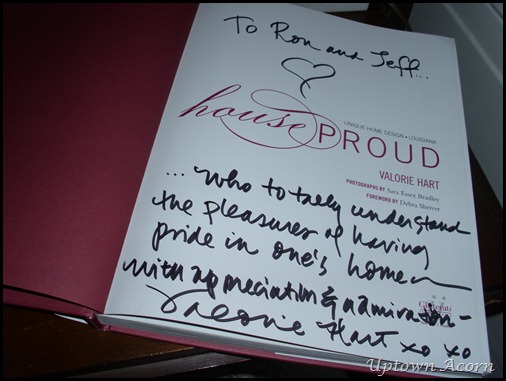 To Ron and Jeff...
house PROUD
UNIQUE HOME DESIGN • LOUISIANA
VALORIE HART
PHOTOGRAPHS BY Sara Essex Bradley
FOREWORD BY Debra Shriver
... who totally understand
the pleasures of having
pride in one's home
with appreciation & admiration -
Valorie Hart xo xo
Glitterati
Uptown Acorn